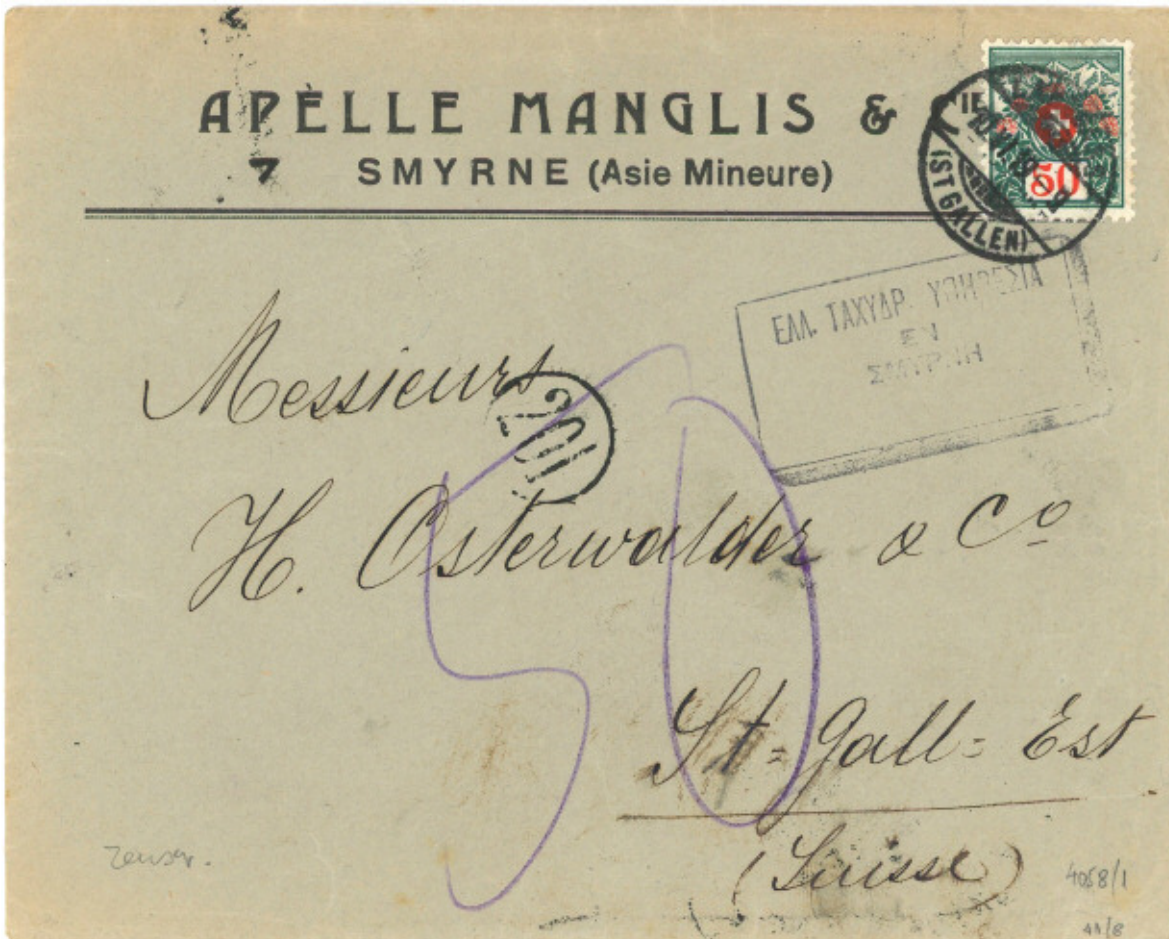 APÈLLE MANGLIS &
7 SMYRNE (Asie Mineure)
50
(ST GALLEN)
ΕΛΛ. ΤΑΧΥΔΡ. ΥΠΗΡΕΣΙΑ
ΕΝ
ΣΜΥΡΝΗ
Messieurs
201
H. Osterwalder & Co
50
St=Gall=Est
(Suisse)
4058/1